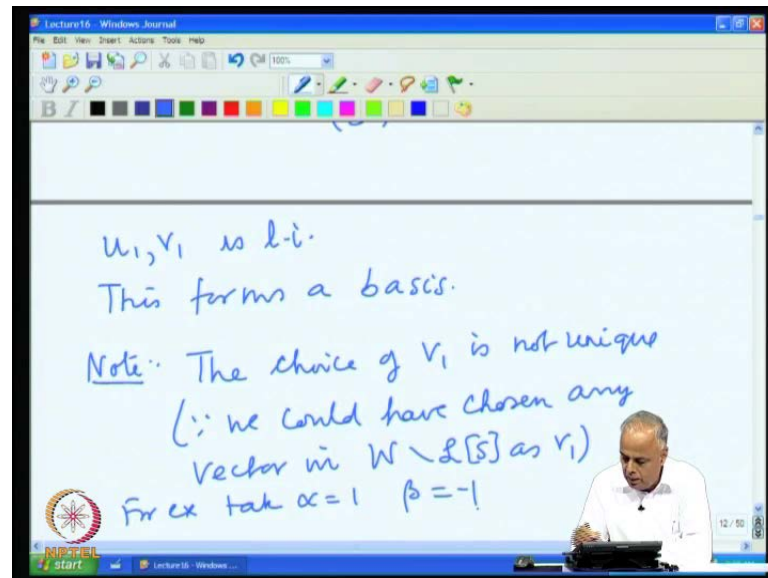 Lecture16 - Windows Journal
File Edit View Insert Actions Tools Help
100%
B I
u₁, v₁ is l.i.
This forms a basis.
Note:- The choice of v₁ is not unique
(∵ we could have chosen any
vector in W \ L[S] as v₁)
For ex tak α=1 β=-1
12/50
NPTEL
start
Lecture16 - Windows ...